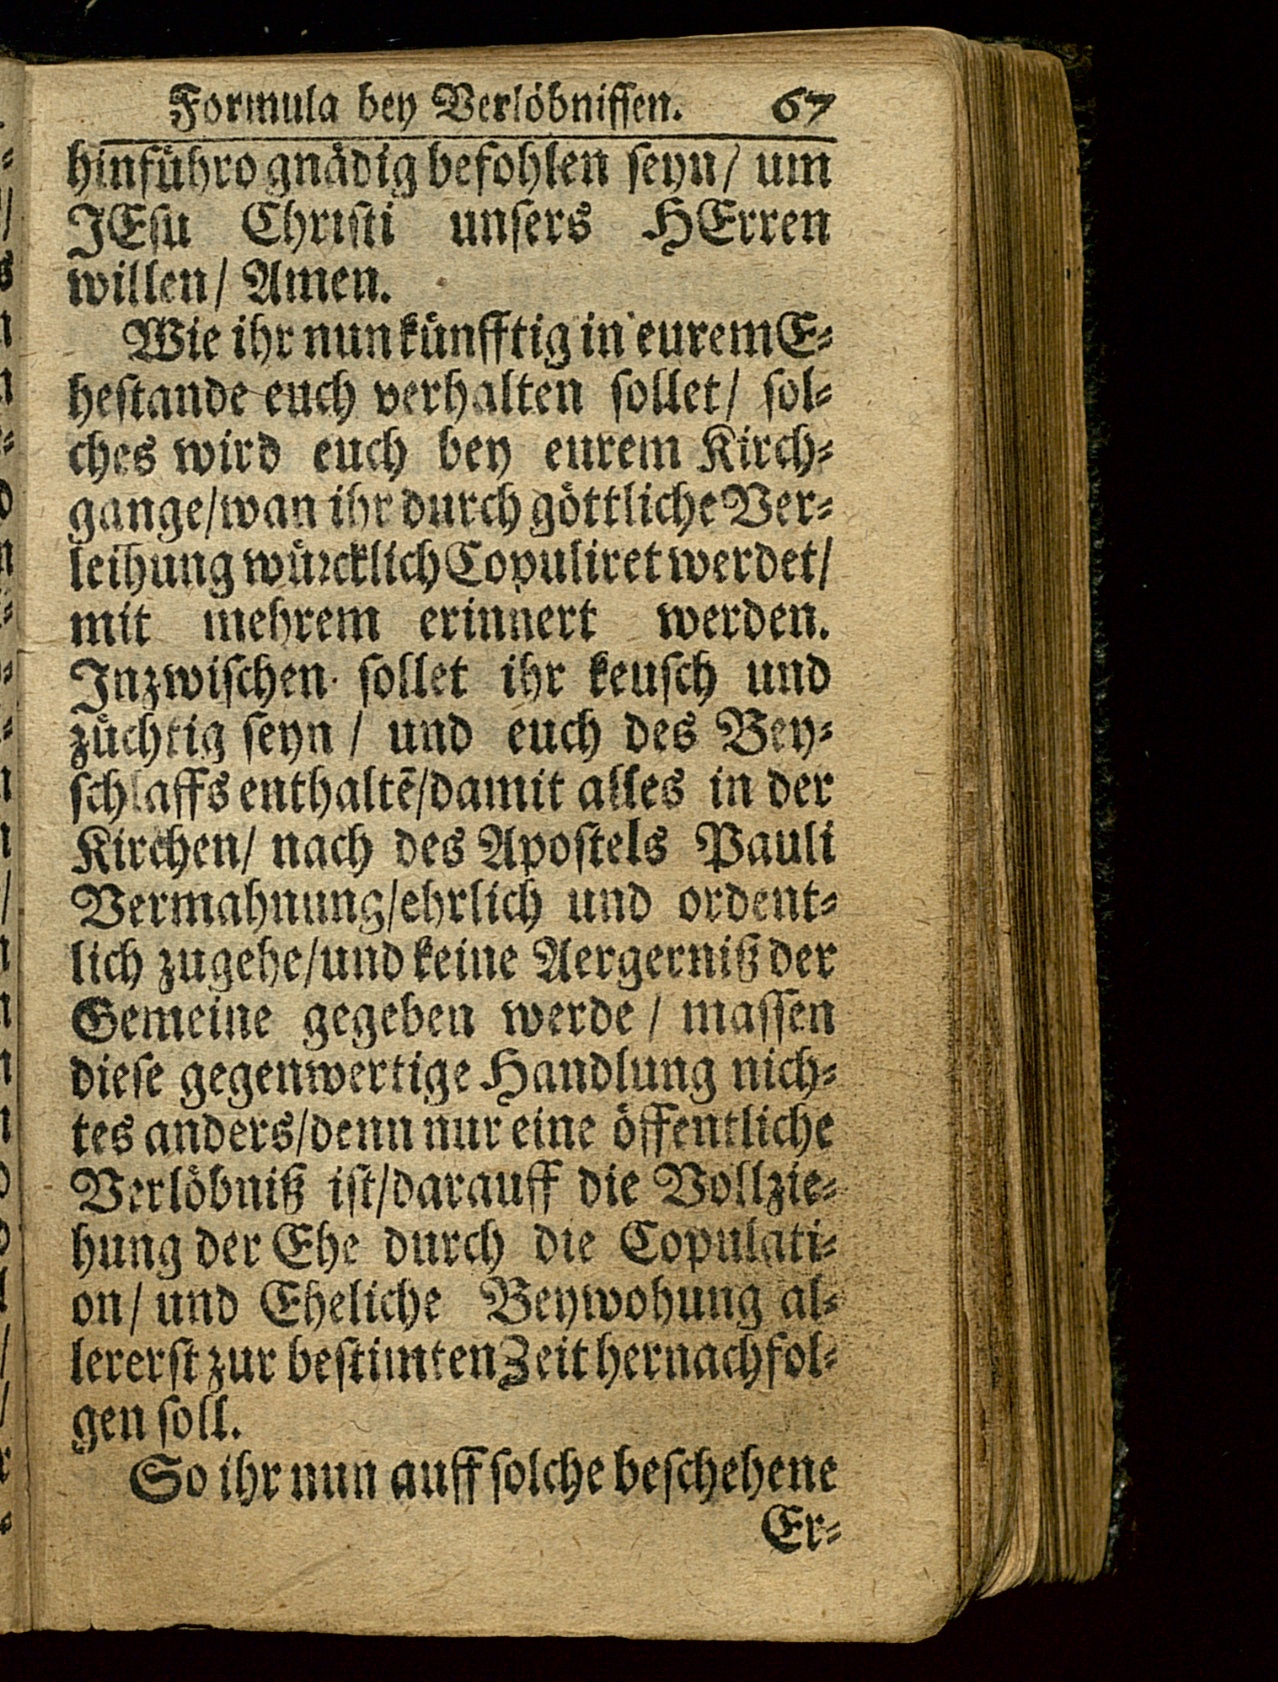 Formula bey Verlöbnissen. 67
hinführo gnädig befohlen seyn/ um
JEsu Christi unsers HErren
willen/ Amen.
Wie ihr nun künfftig in eurem E-
hestande euch verhalten sollet/ sol-
ches wird euch bey eurem Kirch-
gange/wan ihr durch göttliche Ver-
leihung würcklich Copuliret werdet/
mit mehrem erinnert werden.
Inzwischen sollet ihr keusch und
züchtig seyn / und euch des Bey-
schlaffs enthaltē/damit alles in der
Kirchen/ nach des Apostels Pauli
Vermahnung/ehrlich und ordent-
lich zugehe/und keine Aergerniß der
Gemeine gegeben werde / massen
diese gegenwertige Handlung nich-
tes anders/denn nur eine öffentliche
Verlöbniß ist/darauff die Vollzie-
hung der Ehe durch die Copulati-
on/ und Eheliche Beywohung al-
lererst zur bestimten Zeit hernachfol-
gen soll.
So ihr nun auff solche beschehene
Er-